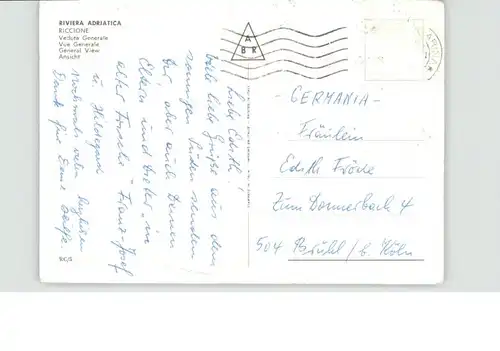 RIVIERA ADRIATICA
RICCIONE
Veduta Generale
Vue Generale
General View
Ansicht
A
B R
Liebe Edith!
Viele liebe Grüße aus dem
sonnigen Süden senden
Dir, aber auch Deinen
Eltern und
alter Franz-Josef
u. Hildegard
Nochmals vielen herzlichen
Dank für Eure
BC/S
- GERMANIA -
Fräulein
Edith Fröde
Zum Donnerbach 4
504 Brühl / b. Köln